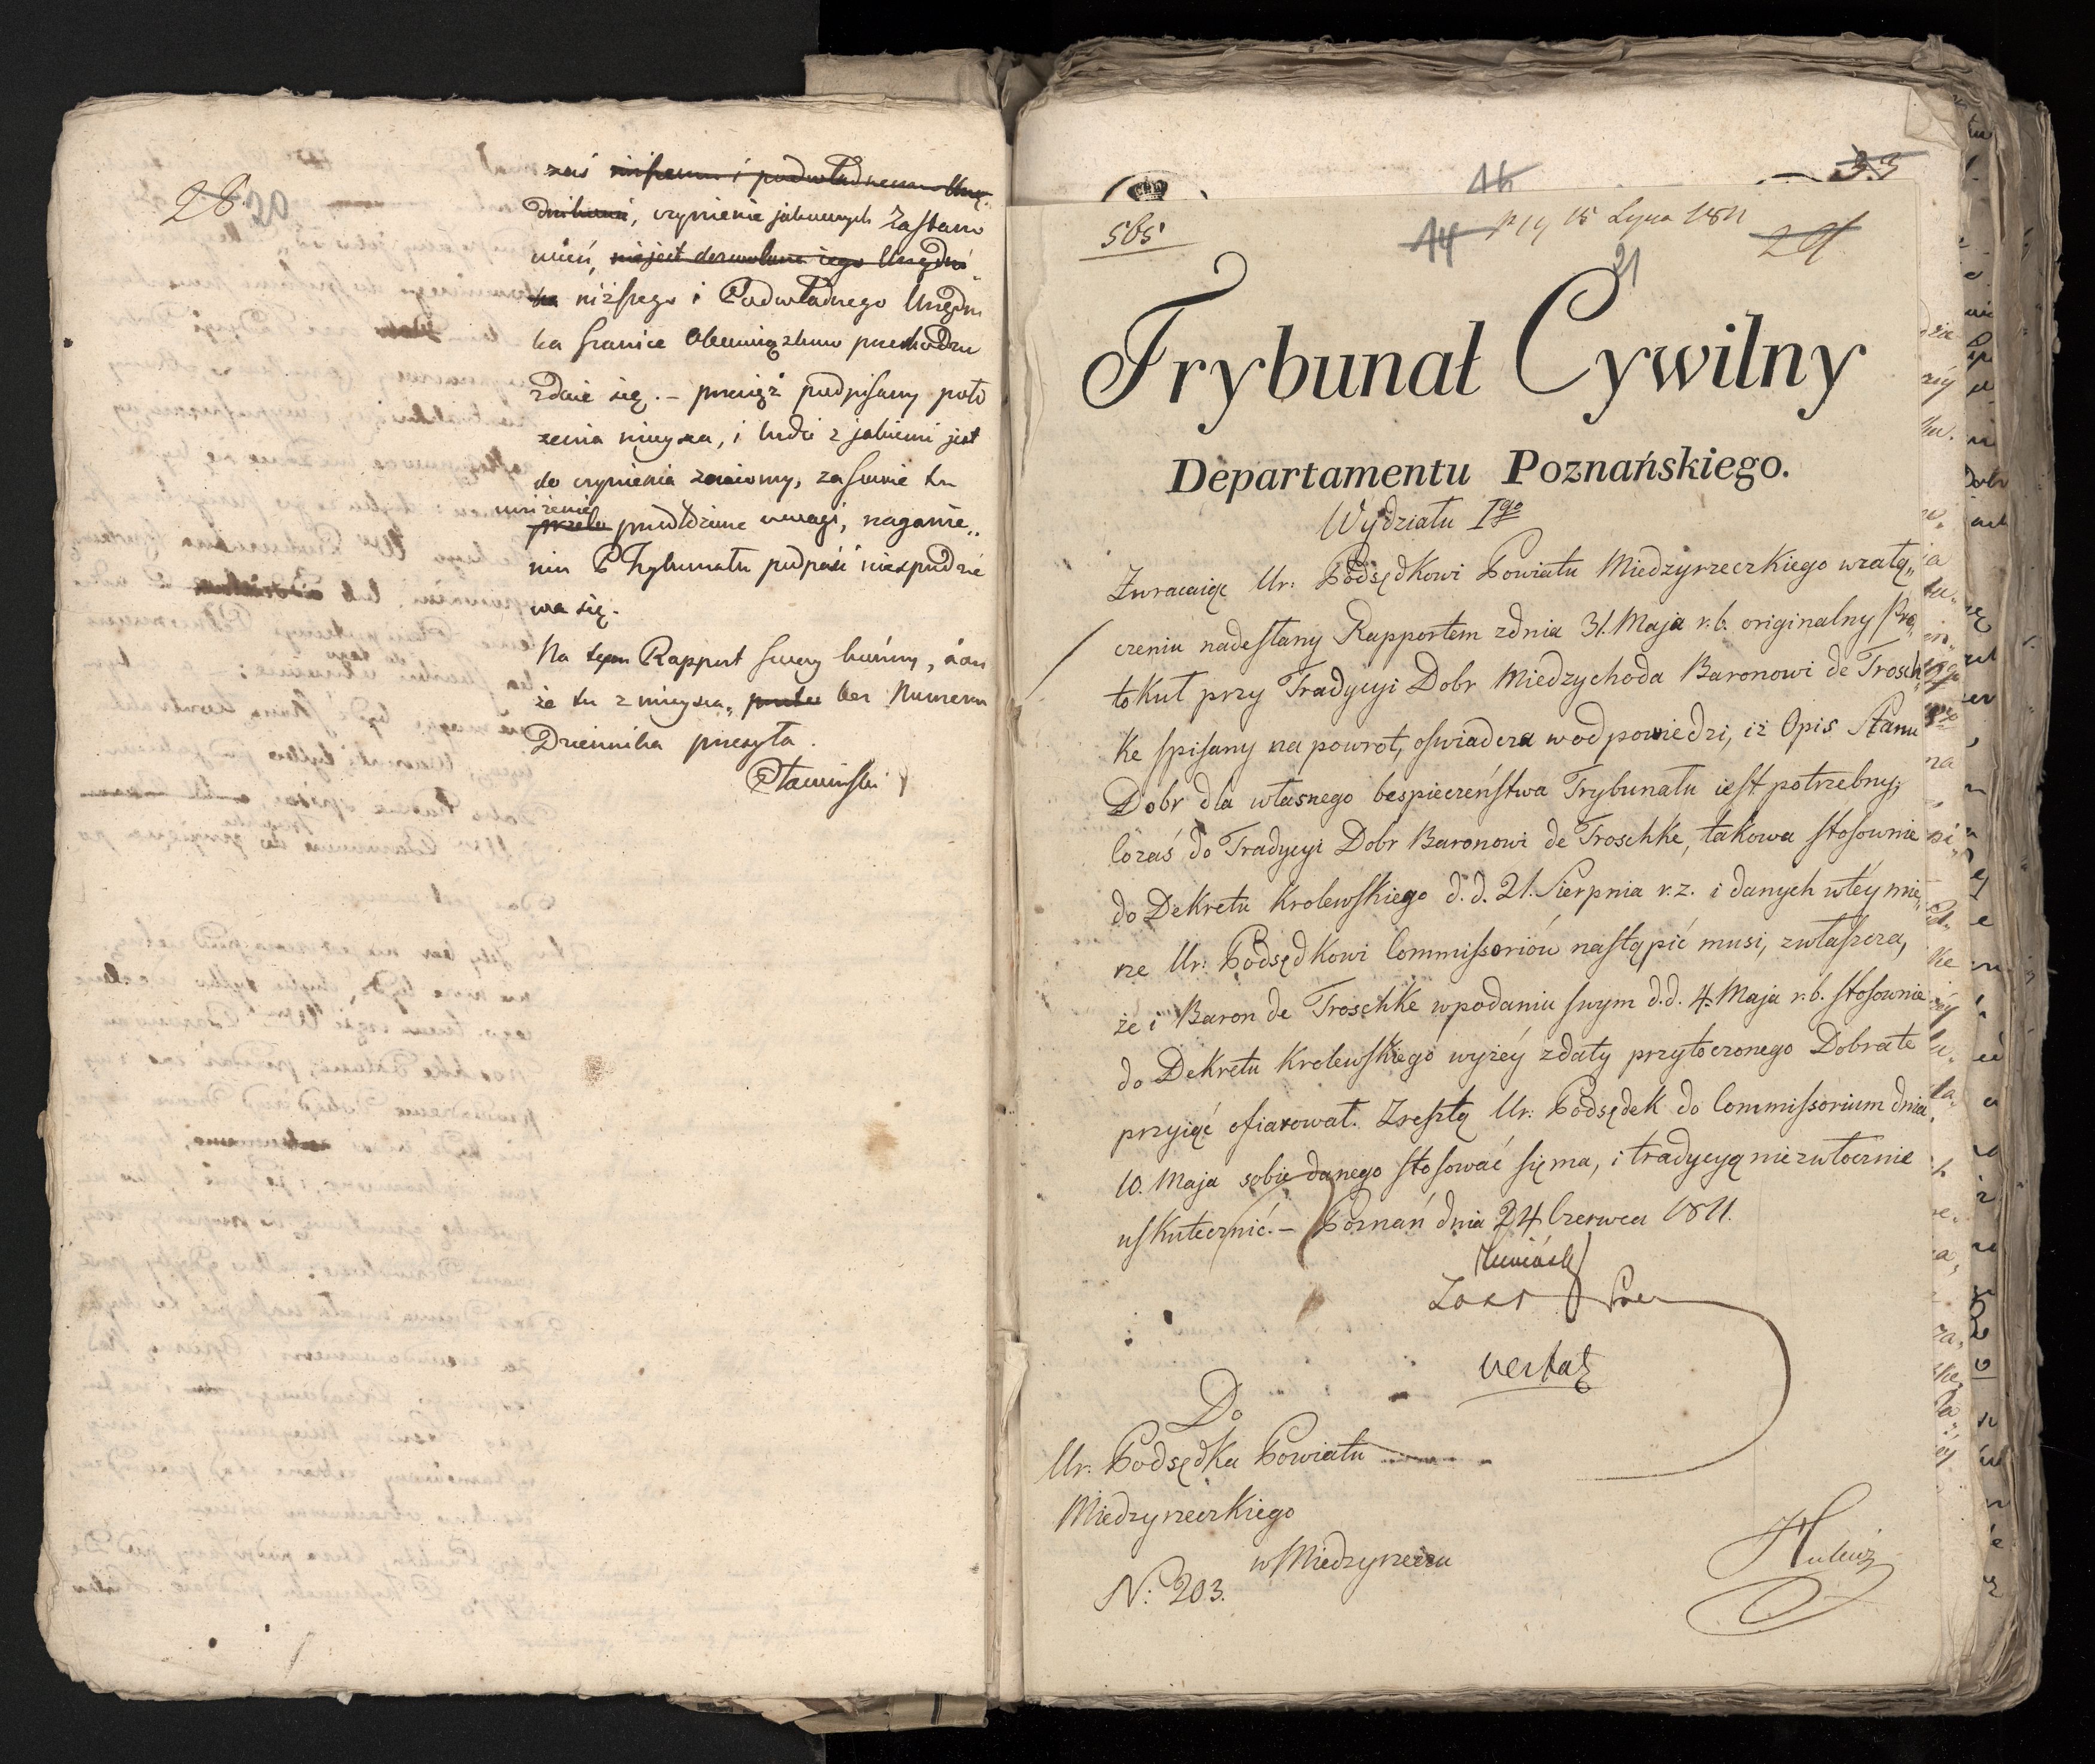 28 20
zaś niższemu i podwładnemu Urzę-
dnikowi, czynienie jakowych Zastano
wień, nie jest dozwolone iego Urzędni
ka niższego i Podwładnego Urzędni
ka Granice Obowiązków przechodzić
zdaie się. – ponieważ podpisany poło
żenia mieysca, i ludzi z jakiemi jest
do czynienia znaiomy, zasunie tu
uniżenie
przeło przełożone uwagi, naganie„
niu P Trybunału podpaść niespodzie
wa się.
Na tym Rapport swóy kończy,
że tu z mieysca, bez Numeru
Dziennika przesyła.
33
16
505
14 p 19 15 Lipca 1811 29
21
Trybunał Cywilny
Departamentu Poznańskiego.
Wydziału Igo
Zwracaiąc Ur: Podsędkowi Powiatu Miedzyrzeczkiego wzałą„
czeniu nadesłany Rapportem zdnia 31. Maja r.b. originalny Pro„
tokuł przy Tradycyi Dobr Miedzychoda Baronowi de Trosch„
ke spisany na powrot, oswiadcza w odpowiedzi, iż Opis Stanu
Dobr dla własnego bespieczeństwa Trybunału iest potrzebny;
Cozaś do Tradycyi Dobr Baronowi de Troschke, takowa stosownie
do Dekretu Krolewskiego d.d. 21. Sierpnia r.z. i danych wtey mie„
rze Ur: Podsędkowi Commissoriów nastąpić musi, zwłaszcza,
że i Baron de Troschke wpodaniu swym d.d. 4. Maja r.b. stosownie
do Dekretu Krolewskiego wyżéy zdaty przytoczonego Dobra te
przyiąć ofiarował. Zresztą Ur: Podsędek do Commissorium dnia
10. Maja sobie danego stosować się ma, i tradycyą niezwłocznie
uskutecznić. – Poznań dnia 24 Czerwca 1811.
Do
Ur. Podsędka Powiatu
Miedzyrzeczkiego
w Miedzyrzeczu
N: 203.